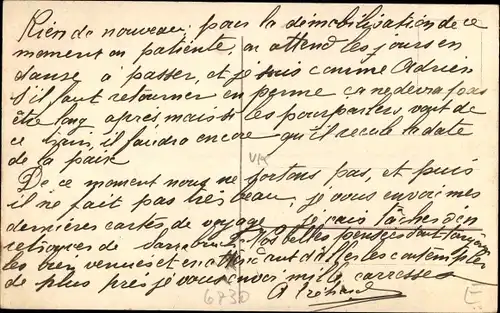 Rien de nouveau pour la démobilisation de ce
moment on patiente, on attend les jours en
à passer, et je suis comme Adrien
s'il faut retourner en perme ca ne devra pas
être long après mais si les pourparlers vont de
ce train, il faudra encore qu'il recule la date
de la paix
De ce moment nous ne sortons pas, et puis
il ne fait pas très beau, je vous envoi mes
dernières cartes de voyage je vais tâcher d'en
retrouver de Vos belles pensées sont toujours
les bien venues et en d'aller les contempler
de plus près je vous envoi mille caresses
VK
6730
E